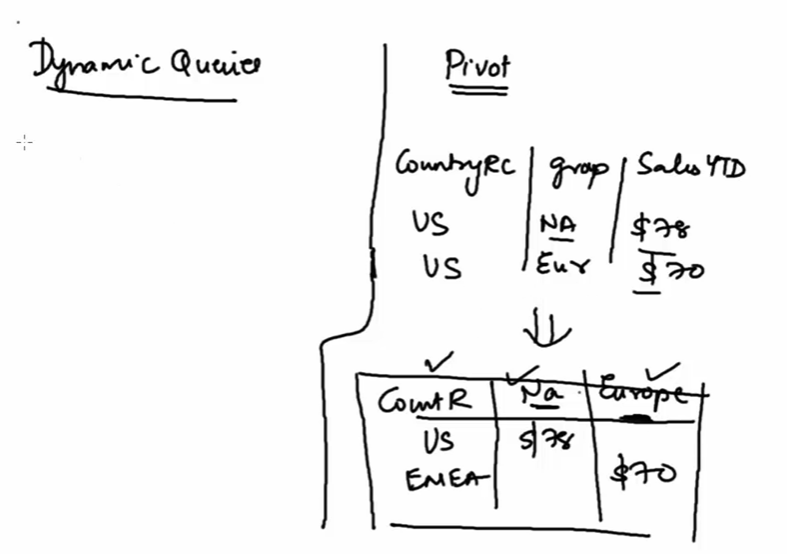 Dynamic Queries
Pivot
CountryRC group Sales YTD
US NA $78
US Eur $70
CountR Na Europe
US $78
EMEA $70